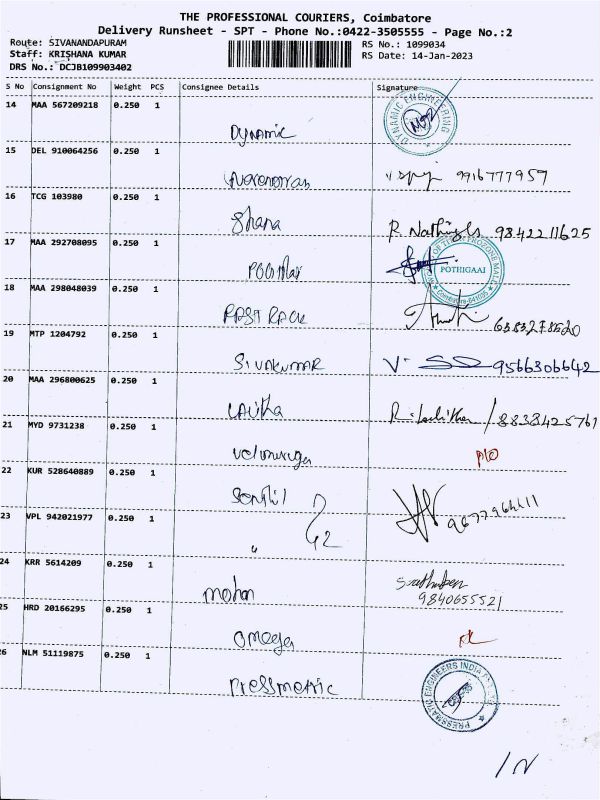 THE PROFESSIONAL COURIERS, Coimbatore
Delivery Runsheet - SPT - Phone No.:0422-3505555 - Page No.:2
Route: SIVANANDAPURAM
Staff: KRISHANA KUMAR
DRS No.: DCJB109903402
RS No.: 1099034
RS Date: 14-Jan-2023
S No Consignment No Weight PCS Consignee Details Signature
14 MAA 567209218 0.250 1
Dynamic
DYNAMIC ENGINEERING
15 DEL 910064256 0.250 1
9916777957
16 TCG 103980 0.250 1
Ghana R. 9842211625
17 MAA 292708095 0.250 1
POTHIGAAI
Coimbatore-641035
18 MAA 298048039 0.250 1
FAST RACK
19 MTP 1204792 0.250 1
SIVAKUMAR V. 9566306642
20 MAA 296800625 0.250 1
Lalitha R. / 8838425761
21 MYD 9731238 0.250 1
Velmurugan
22 KUR 528640889 0.250 1
Senthil
23 VPL 942021977 0.250 1
"
24 KRR 5614209 0.250 1
mohan
9840655521
25 HRD 20166295 0.250 1
omega
26 NLM 51119875 0.250 1
Pressmatic
PRESSMATIC ENGINEERS INDIA